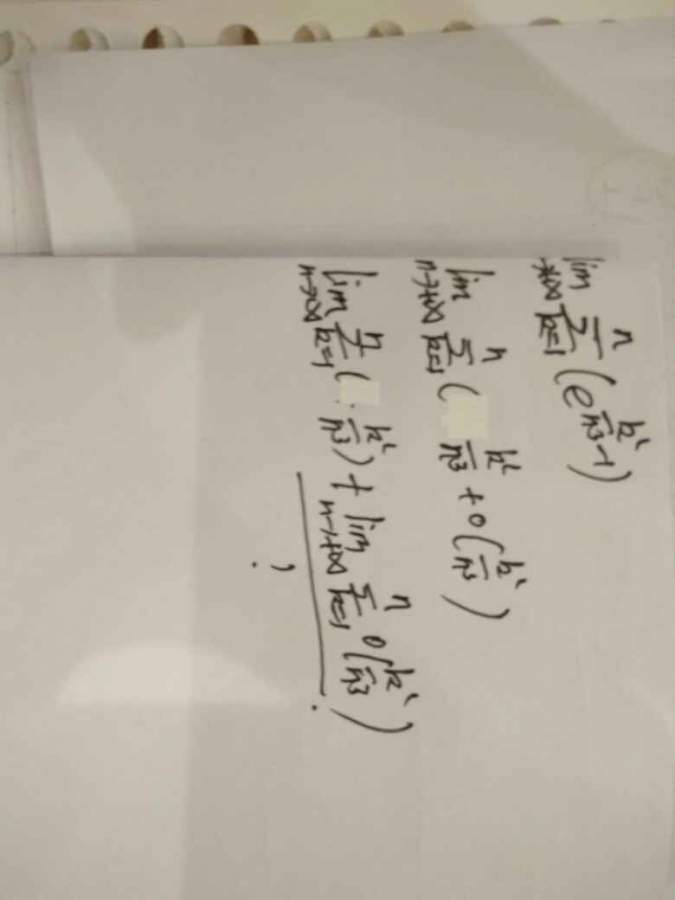 lim_{n→+∞} Σ_{k=1}^{n} (e^{k²/n³} - 1)
lim_{n→+∞} Σ_{k=1}^{n} ( k²/n³ + o(k²/n³) )
lim_{n→∞} Σ_{k=1}^{n} ( k²/n³ ) + lim_{n→+∞} Σ_{k=1}^{n} o(k²/n³).
?